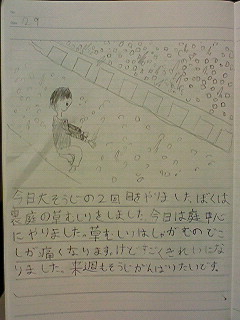 29
今日大そうじの2回目をやりました。ぼくは
裏庭の草むしりをしました。今日は庭中心
にやりました。草むしりはしゃがむのでこ
しが痛くなります。けどすごくきれいにな
りました。来週もそうじがんばりたいです。